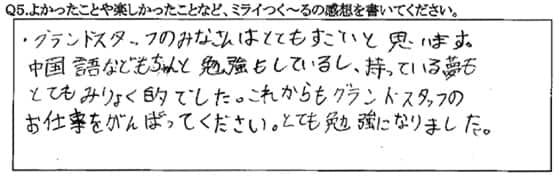 Q5.よかったことや楽しかったことなど、ミライつく~るの感想を書いてください。
・グランドスタッフのみなさんはとてもすごいと思います。
中国語などもちゃんと勉強もしているし、持っている夢も
とてもみりょく的でした。これからもグランドスタッフの
お仕事をがんばってください。とても勉強になりました。